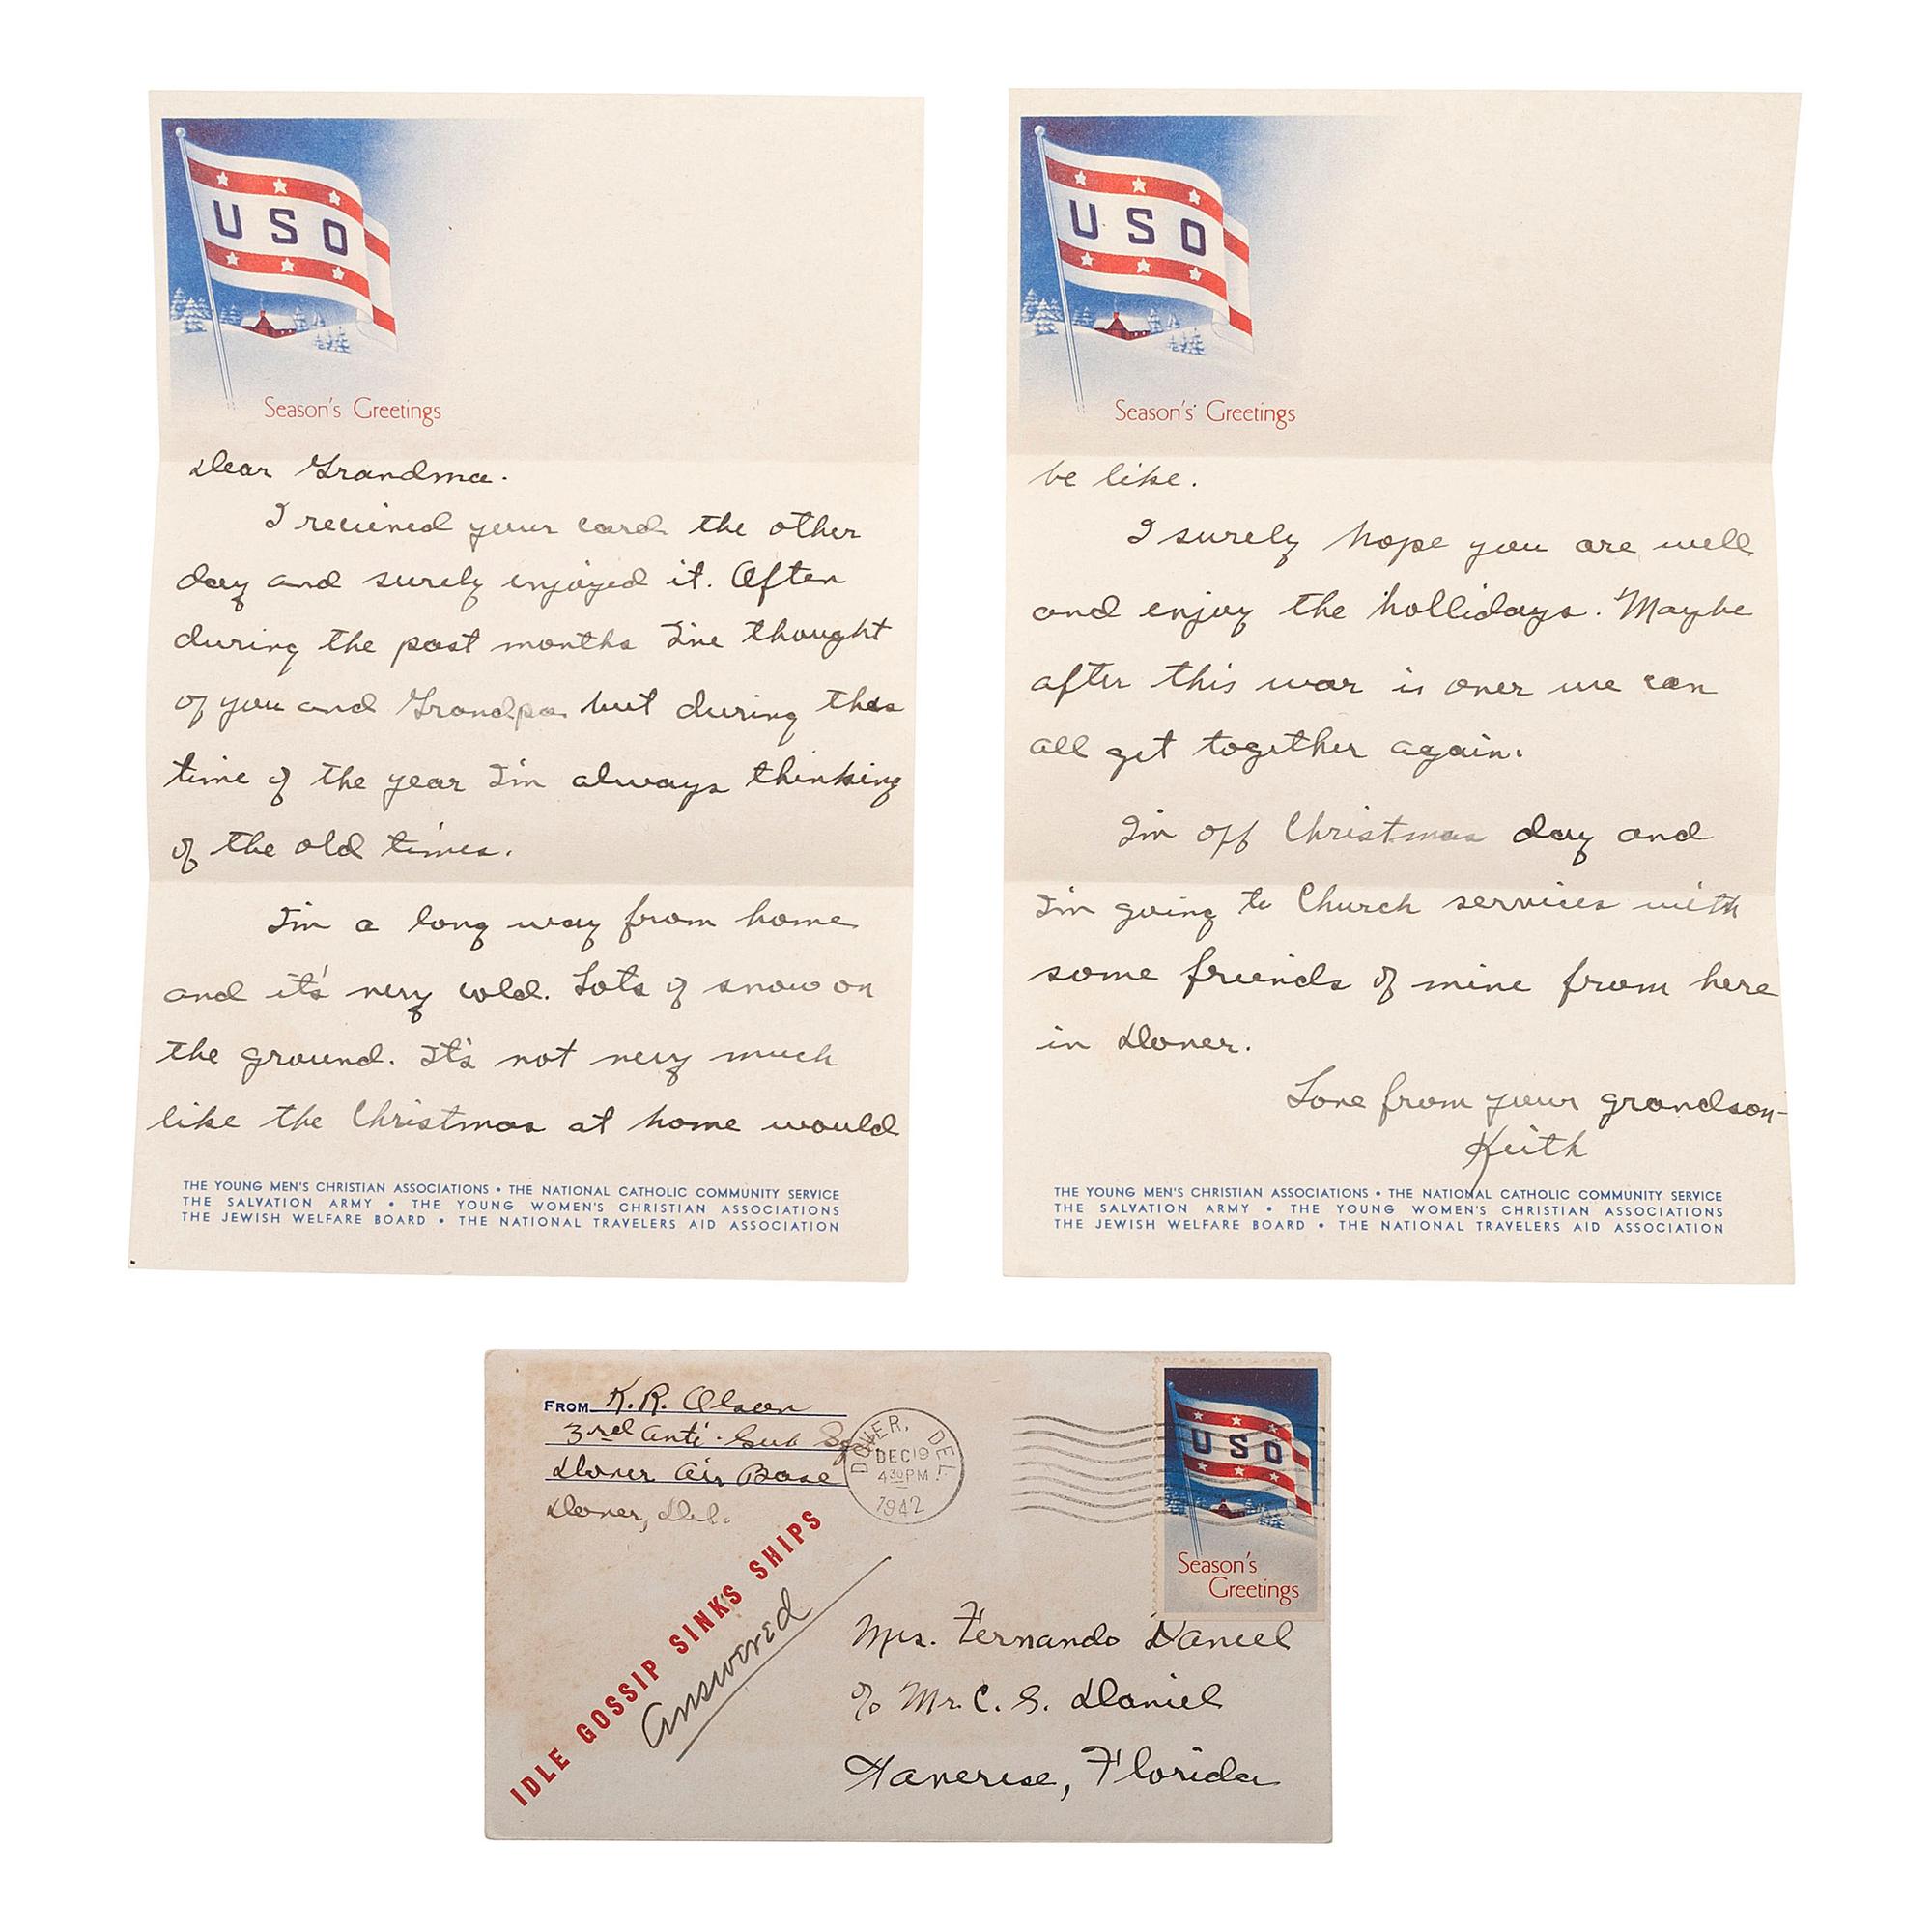 USO
Season's Greetings
Dear Grandma.
I received your card the other
day and surely enjoyed it. Often
during the past months I've thought
of you and Grandpa but during this
time of the year I'm always thinking
of the old times.
I'm a long way from home
and it's very cold. Lots of snow on
the ground. It's not very much
like the Christmas at home would
THE YOUNG MEN'S CHRISTIAN ASSOCIATIONS • THE NATIONAL CATHOLIC COMMUNITY SERVICE
THE SALVATION ARMY • THE YOUNG WOMEN'S CHRISTIAN ASSOCIATIONS
THE JEWISH WELFARE BOARD • THE NATIONAL TRAVELERS AID ASSOCIATION
USO
Season's Greetings
be like.
I surely hope you are well
and enjoy the hollidays. Maybe
after this war is over we can
all get together again.
I'm off Christmas day and
I'm going to Church services with
some friends of mine from here
in Dover.
Love from your grandson-
Keith
THE YOUNG MEN'S CHRISTIAN ASSOCIATIONS • THE NATIONAL CATHOLIC COMMUNITY SERVICE
THE SALVATION ARMY • THE YOUNG WOMEN'S CHRISTIAN ASSOCIATIONS
THE JEWISH WELFARE BOARD • THE NATIONAL TRAVELERS AID ASSOCIATION
FROM K.R. Olson
3rd Anti-Sub Sq
Dover Air Base
Dover, Del.
DOVER, DEL.
DEC 19
4 30 PM
1942
USO
Season's
Greetings
IDLE GOSSIP SINKS SHIPS
Answered
Mrs. Fernando Daniel
c/o Mr. C. S. Daniel
Florida